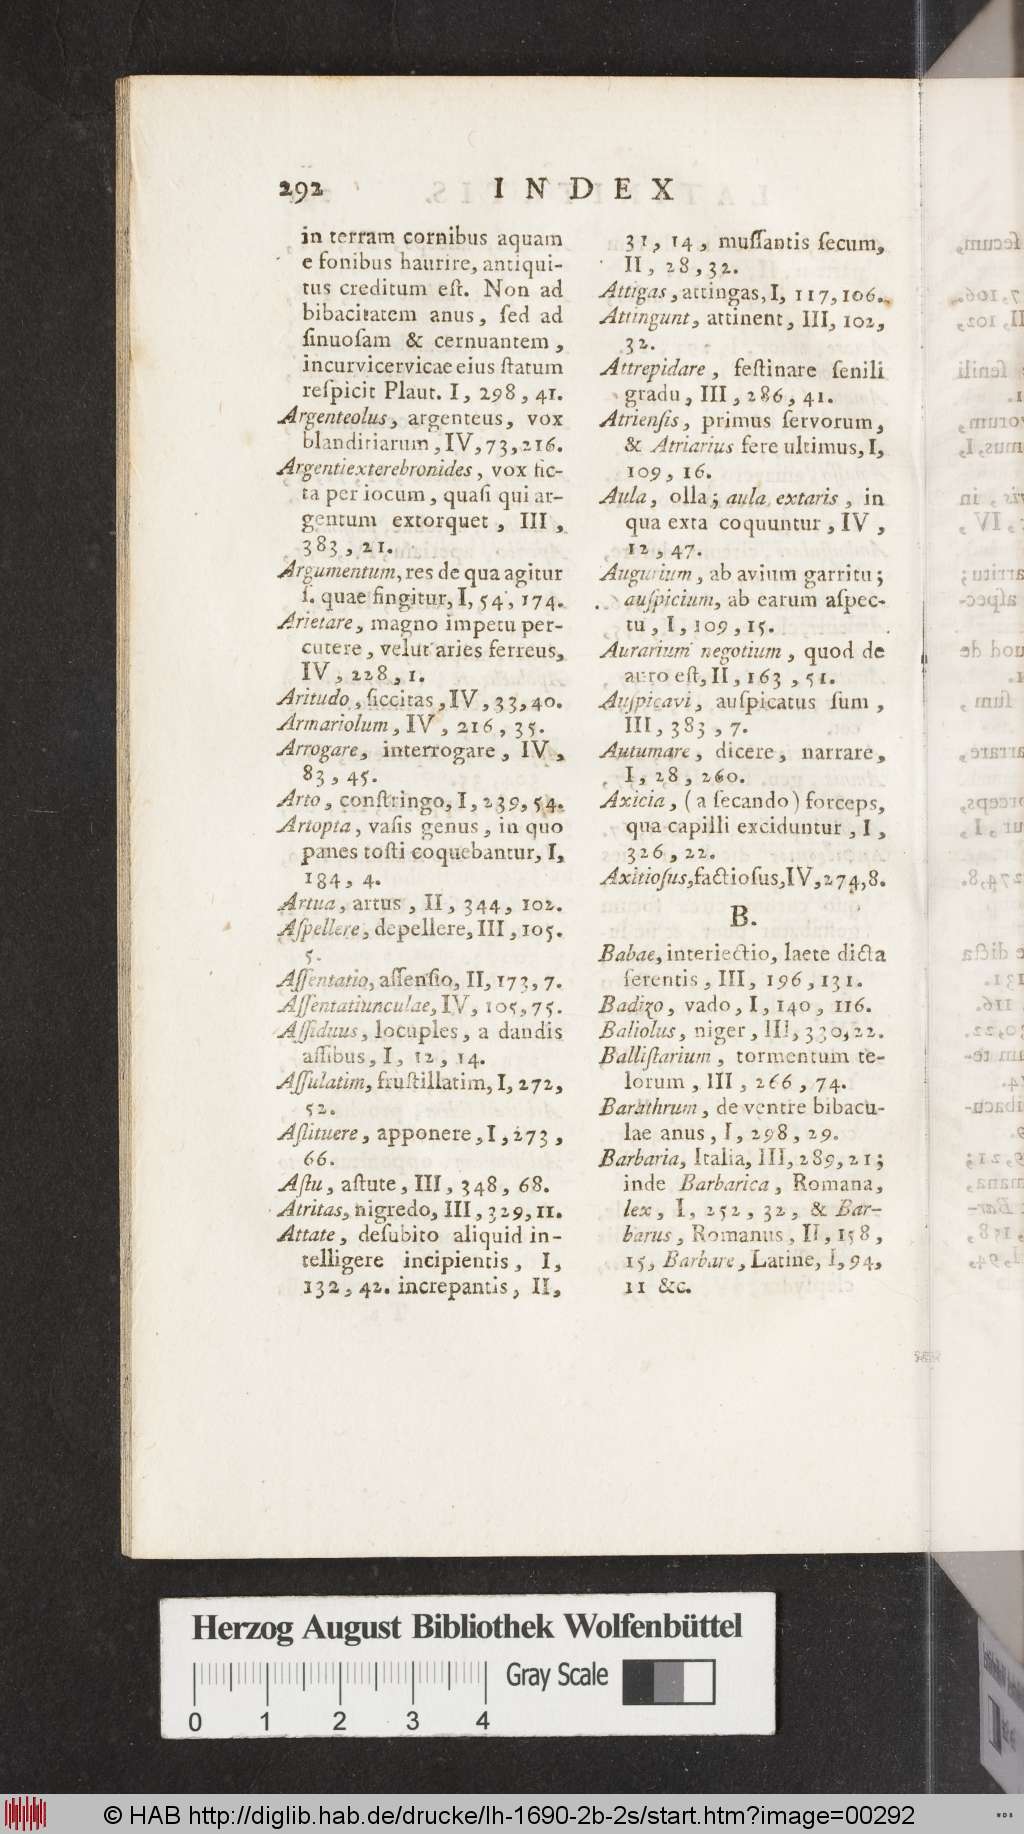 292 INDEX
in terram cornibus aquam
e fonibus haurire, antiqui-
tus creditum eſt. Non ad
bibacitatem anus, ſed ad
ſinuoſam & cernuantem,
incurvicervicae eius ſtatum
reſpicit Plaut. I, 298, 41.
Argenteolus, argenteus, vox
blanditiarum, IV, 73, 216.
Argentiexterebronides, vox fic-
ta per iocum, quaſi qui ar-
gentum extorquet, III,
383, 21.
Argumentum, res de qua agitur
ſ. quae fingitur, I, 54, 174.
Arietare, magno impetu per-
cutere, velut aries ferreus,
IV, 228, 1.
Aritudo, ſiccitas, IV, 33, 40.
Armariolum, IV, 216, 35.
Arrogare, interrogare, IV,
83, 45.
Arto, conſtringo, I, 239, 54.
Artopta, vaſis genus, in quo
panes toſti coquebantur, I,
184, 4.
Artua, artus, II, 344, 102.
Aſpellere, depellere, III, 105.
5.
Aſſentatio, aſſenſio, II, 173, 7.
Aſſentatiunculae, IV, 105, 75.
Aſſiduus, locuples, a dandis
aſſibus, I, 12, 14.
Aſſulatim, fruſtillatim, I, 272,
52.
Aſtituere, apponere, I, 273,
66.
Aſtu, aſtute, III, 348, 68.
Atritas, nigredo, III, 329, 11.
Attate, deſubito aliquid in-
telligere incipientis, I,
132, 42. increpantis, II,
31, 14, muſſantis ſecum,
II, 28, 32.
Attigas, attingas, I, 117, 106.
Attingunt, attinent, III, 102,
32.
Attrepidare, feſtinare ſenili
gradu, III, 286, 41.
Atrienſis, primus ſervorum,
& Atriarius fere ultimus, I,
109, 16.
Aula, olla; aula extaris, in
qua exta coquuntur, IV,
12, 47.
Augurium, ab avium garritu;
auſpicium, ab earum aſpec-
tu, I, 109, 15.
Aurarium negotium, quod de
auro eſt, II, 163, 51.
Auſpicavi, auſpicatus ſum,
III, 383, 7.
Autumare, dicere, narrare,
I, 28, 260.
Axicia, (a ſecando) forceps,
qua capilli exciduntur, I,
326, 22.
Axitioſus, factioſus, IV, 274, 8.
B.
Babae, interiectio, laete dicta
ferentis, III, 196, 131.
Badizo, vado, I, 140, 116.
Baliolus, niger, III, 330, 22.
Balliſtarium, tormentum te-
lorum, III, 266, 74.
Barathrum, de ventre bibacu-
lae anus, I, 298, 29.
Barbaria, Italia, III, 289, 21;
inde Barbarica, Romana,
lex, I, 252, 32, & Bar-
barus, Romanus, II, 158,
15, Barbare, Latine, I, 94,
11 &c.
Herzog August Bibliothek Wolfenbüttel
Gray Scale
0 1 2 3 4
© HAB http://diglib.hab.de/drucke/lh-1690-2b-2s/start.htm?image=00292